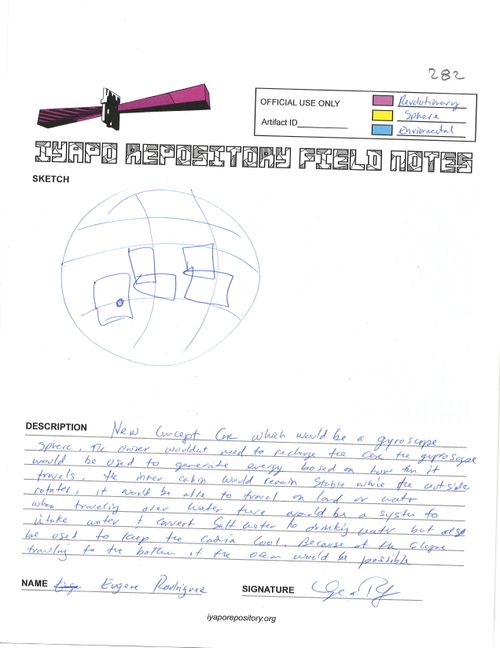 282
OFFICIAL USE ONLY
Artifact ID
Revolutionary
Sphere
Enviormental
IYAPO REPOSITORY FIELD NOTES
SKETCH
DESCRIPTION New Concept Car which would be a gyroscope
sphere. The owner wouldnt need to recharge the car the gyroscope
would be used to generate energy based on how far it
travels. The inner cabin would remain stable while the outside
rotates, it would be able to travel on land or water
when traveling over water there would be a system to
intake water & convert Salt water to drinking water but also
be used to keep the cabin Cool. Because of the
traveling to the bottom of the ocean would be possible
NAME Eugene Rodriguez
SIGNATURE
iyaporepository.org